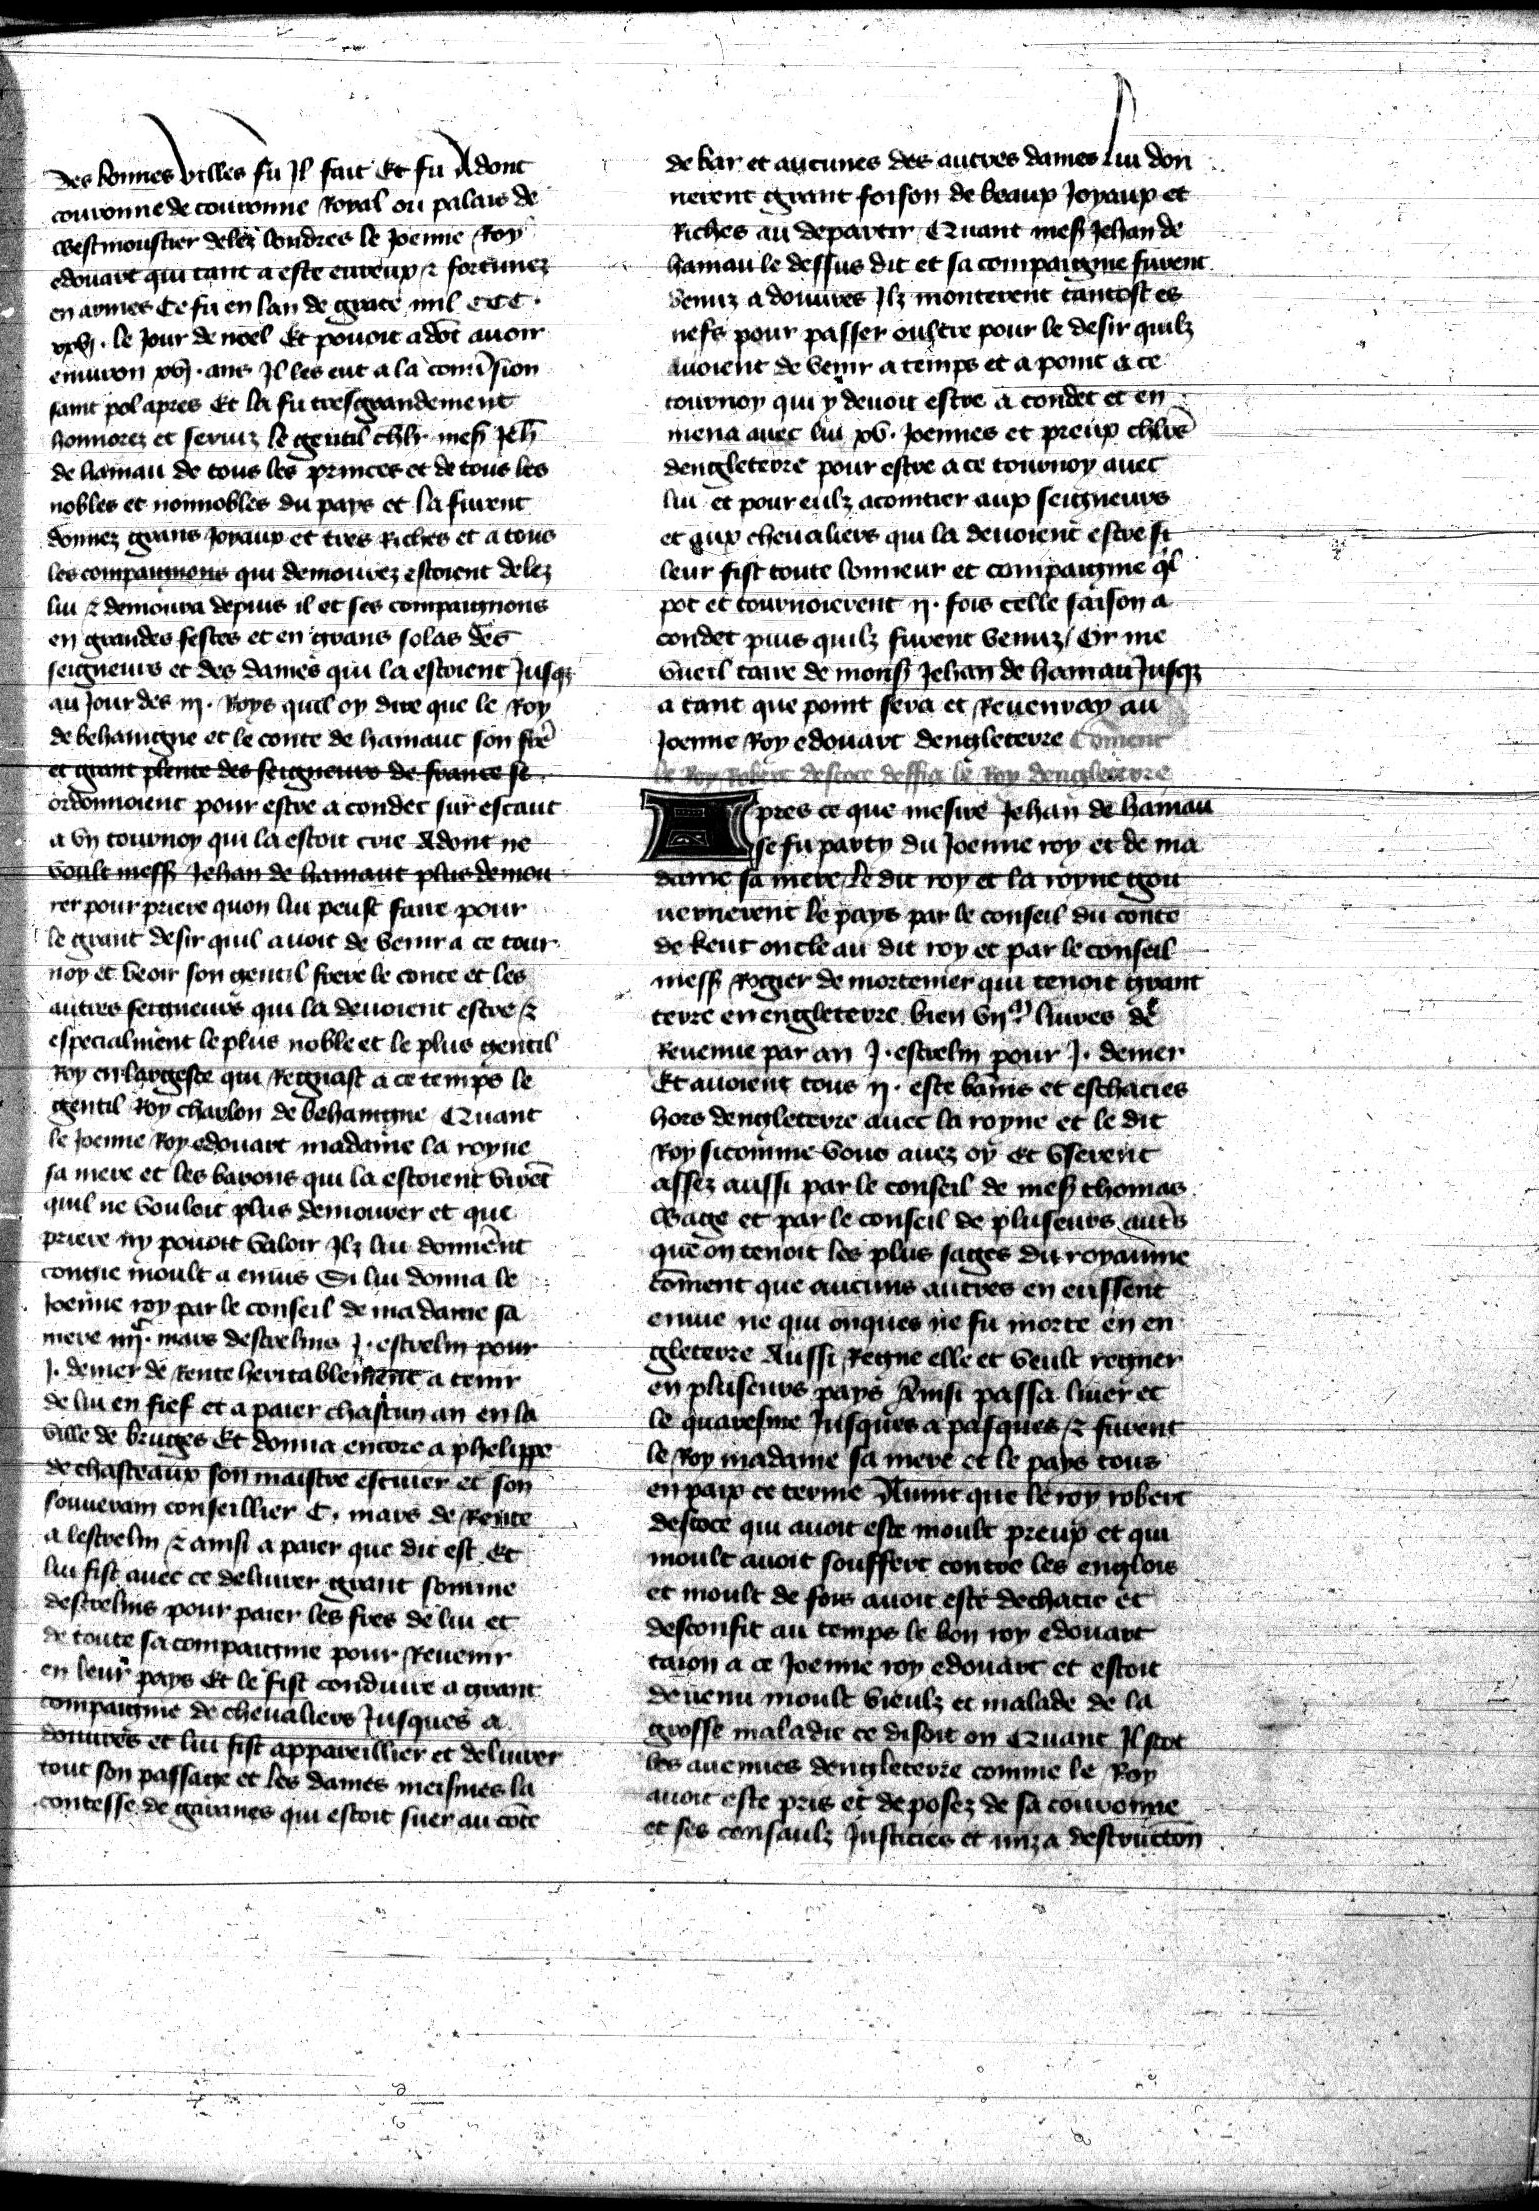 des bonnes villes fu Il fait Et fu Adont
couronne de couronne Royal ou palais de
westmoustier delez londres le Joenne Roy
edouart qui tant a este eureux ⁊ fortunez
en armes Ce fu en lan de grace mil CCC.
xxvj. le Jour de noel Et pouoit adōt auoir
enuiron xvj. ans Il les eut a la conu̇sion
saint pol apres Et la fu tresgrandement
honnorez et seruiz le gentil chlr mess Jeh̄
de hainau de tous les princes et de tous les
nobles et nonnobles du pays et la furent
donnez grans Joyaux et tres Riches et a tous
les compaignons qui demourez estoient delez
lui ⁊ demoura depuis il et ses compaignons
en grandes festes et en grans solas des
seigneurs et des dames qui la estoient Jusqz
au Jour des iij. Roys quil oy dire que le Roy
de behaingne et le conte de hainaut son fre
et grant plente des seigneurs de france se
ordonnoient pour estre a condet sur escaut
a vn tournoy qui la estoit crie Adont ne
voult mess Jehan de hainaut plus demou
rer pour priere quon lui peust faire pour
le grant desir quil auoit de venir a ce tour
noy et veoir son gentil frere le conte et les
autres seigneurs qui la deuoient estre ⁊
especialment le plus noble et le plus gentil
Roy en largesce qui Regnast a ce temps le
gentil Roy charlon de behaingne Quant
le Joenne Roy edouart madame la royne
sa mere et les barons qui la estoient virēt
quil ne vouloit plus demourer et que
priere ny pouoit valoir Ilz lui donnērt
congie moult a enuis Si lui donna le
Joenne roy par le conseil de madame sa
mere iiijᶜ. mars destrelins J. estrelin pour
J. denier de Rente heritablement a tenir
de lui en fief et a paier chascun an en la
ville de bruges Et donna encore a phelippe
de chasteaux son maistre escuier et son
souuerain conseillier C. mars de Rente
a lestrelin ⁊ ainsi a paier que dit est Et
lui fist auec ce deliurer grant somme
destrelins pour paier les fres de lui et
de toute sa compaignie pour Reuenir
en leur pays Et le fist conduire a grant
compaignie de cheualiers Jusques a
douures et lui fist appareillier et deliurer
tout son passage et les dames meismes la
contesse de garanes qui estoit suer au cōte
de bar et aucunes des autres dames lui don
nerent grant foison de beaux Joyaux et
Riches au departir Quant mess Jehan de
hainau le dessus dit et sa compaignie furent
venuz a douures Ilz monterent tantost es
nefs pour passer oultre pour le desir quilz
auoient de venir a temps et a point a ce
tournoy qui y deuoit estre a condet et en
mena auec lui xv. Joennes et preux chlrs
dengleterre pour estre a ce tournoy auec
lui et pour eulz acointier aux seigneurs
et aux cheualiers qui la deuoient estre si
leur fist toute honneur et compaignie ql
pot et tournoierent ij. fois celle saison a
condet puis quilz furent venuz / Or me
vueil taire de mons Jehan de hainau Jusqz
a tant que point sera et Reuenray au
Joenne Roy edouart dengleterre Coment
le Roy Robert descoce deffia le Roy dengleterre
Apres ce que mesire Jehan de hainau
se fu party du Joenne roy et de ma
dame sa mere / le dit roy et la royne gou
uernerent le pays par le conseil du conte
de kent oncle au dit roy et par le conseil
mess Rogier de mortemer qui tenoit grant
terre en engleterre bien vijᵐ. liures de
Reuenue par an J. estrelin pour J. denier
Et auoient tous ij. este bānis et eschacies
hors dengleterre auec la royne et le dit
Roy sicomme vous auez oy Et vserent
assez aussi par le conseil de mess thomas
wage et par le conseil de pluseurs autrs
que on tenoit les plus sages du royaume
cōment que aucuns autres en eussent
enuie ne qui onques ne fu morte en en
gleterre Aussi Regne elle et veult regner
en pluseurs pays Ainsi passa liuer et
le quaresme Jusques a pasques ⁊ furent
le Roy madame sa mere et le pays tous
en paix ce terme Auint que le roy robert
descoce qui auoit este moult preux et qui
moult auoit souffert contre les englois
et moult de fois auoit este dechacie et
desconfit au temps le bon roy edouart
taion a ce Joenne roy edouart et estoit
deuenu moult vieulz et malade de la
grosse maladie ce disoit on Quant Il scot
les auenues dengleterre comme le Roy
auoit este pris et deposez de sa couronne
et ses consaulz Justicies et miz a destructōn